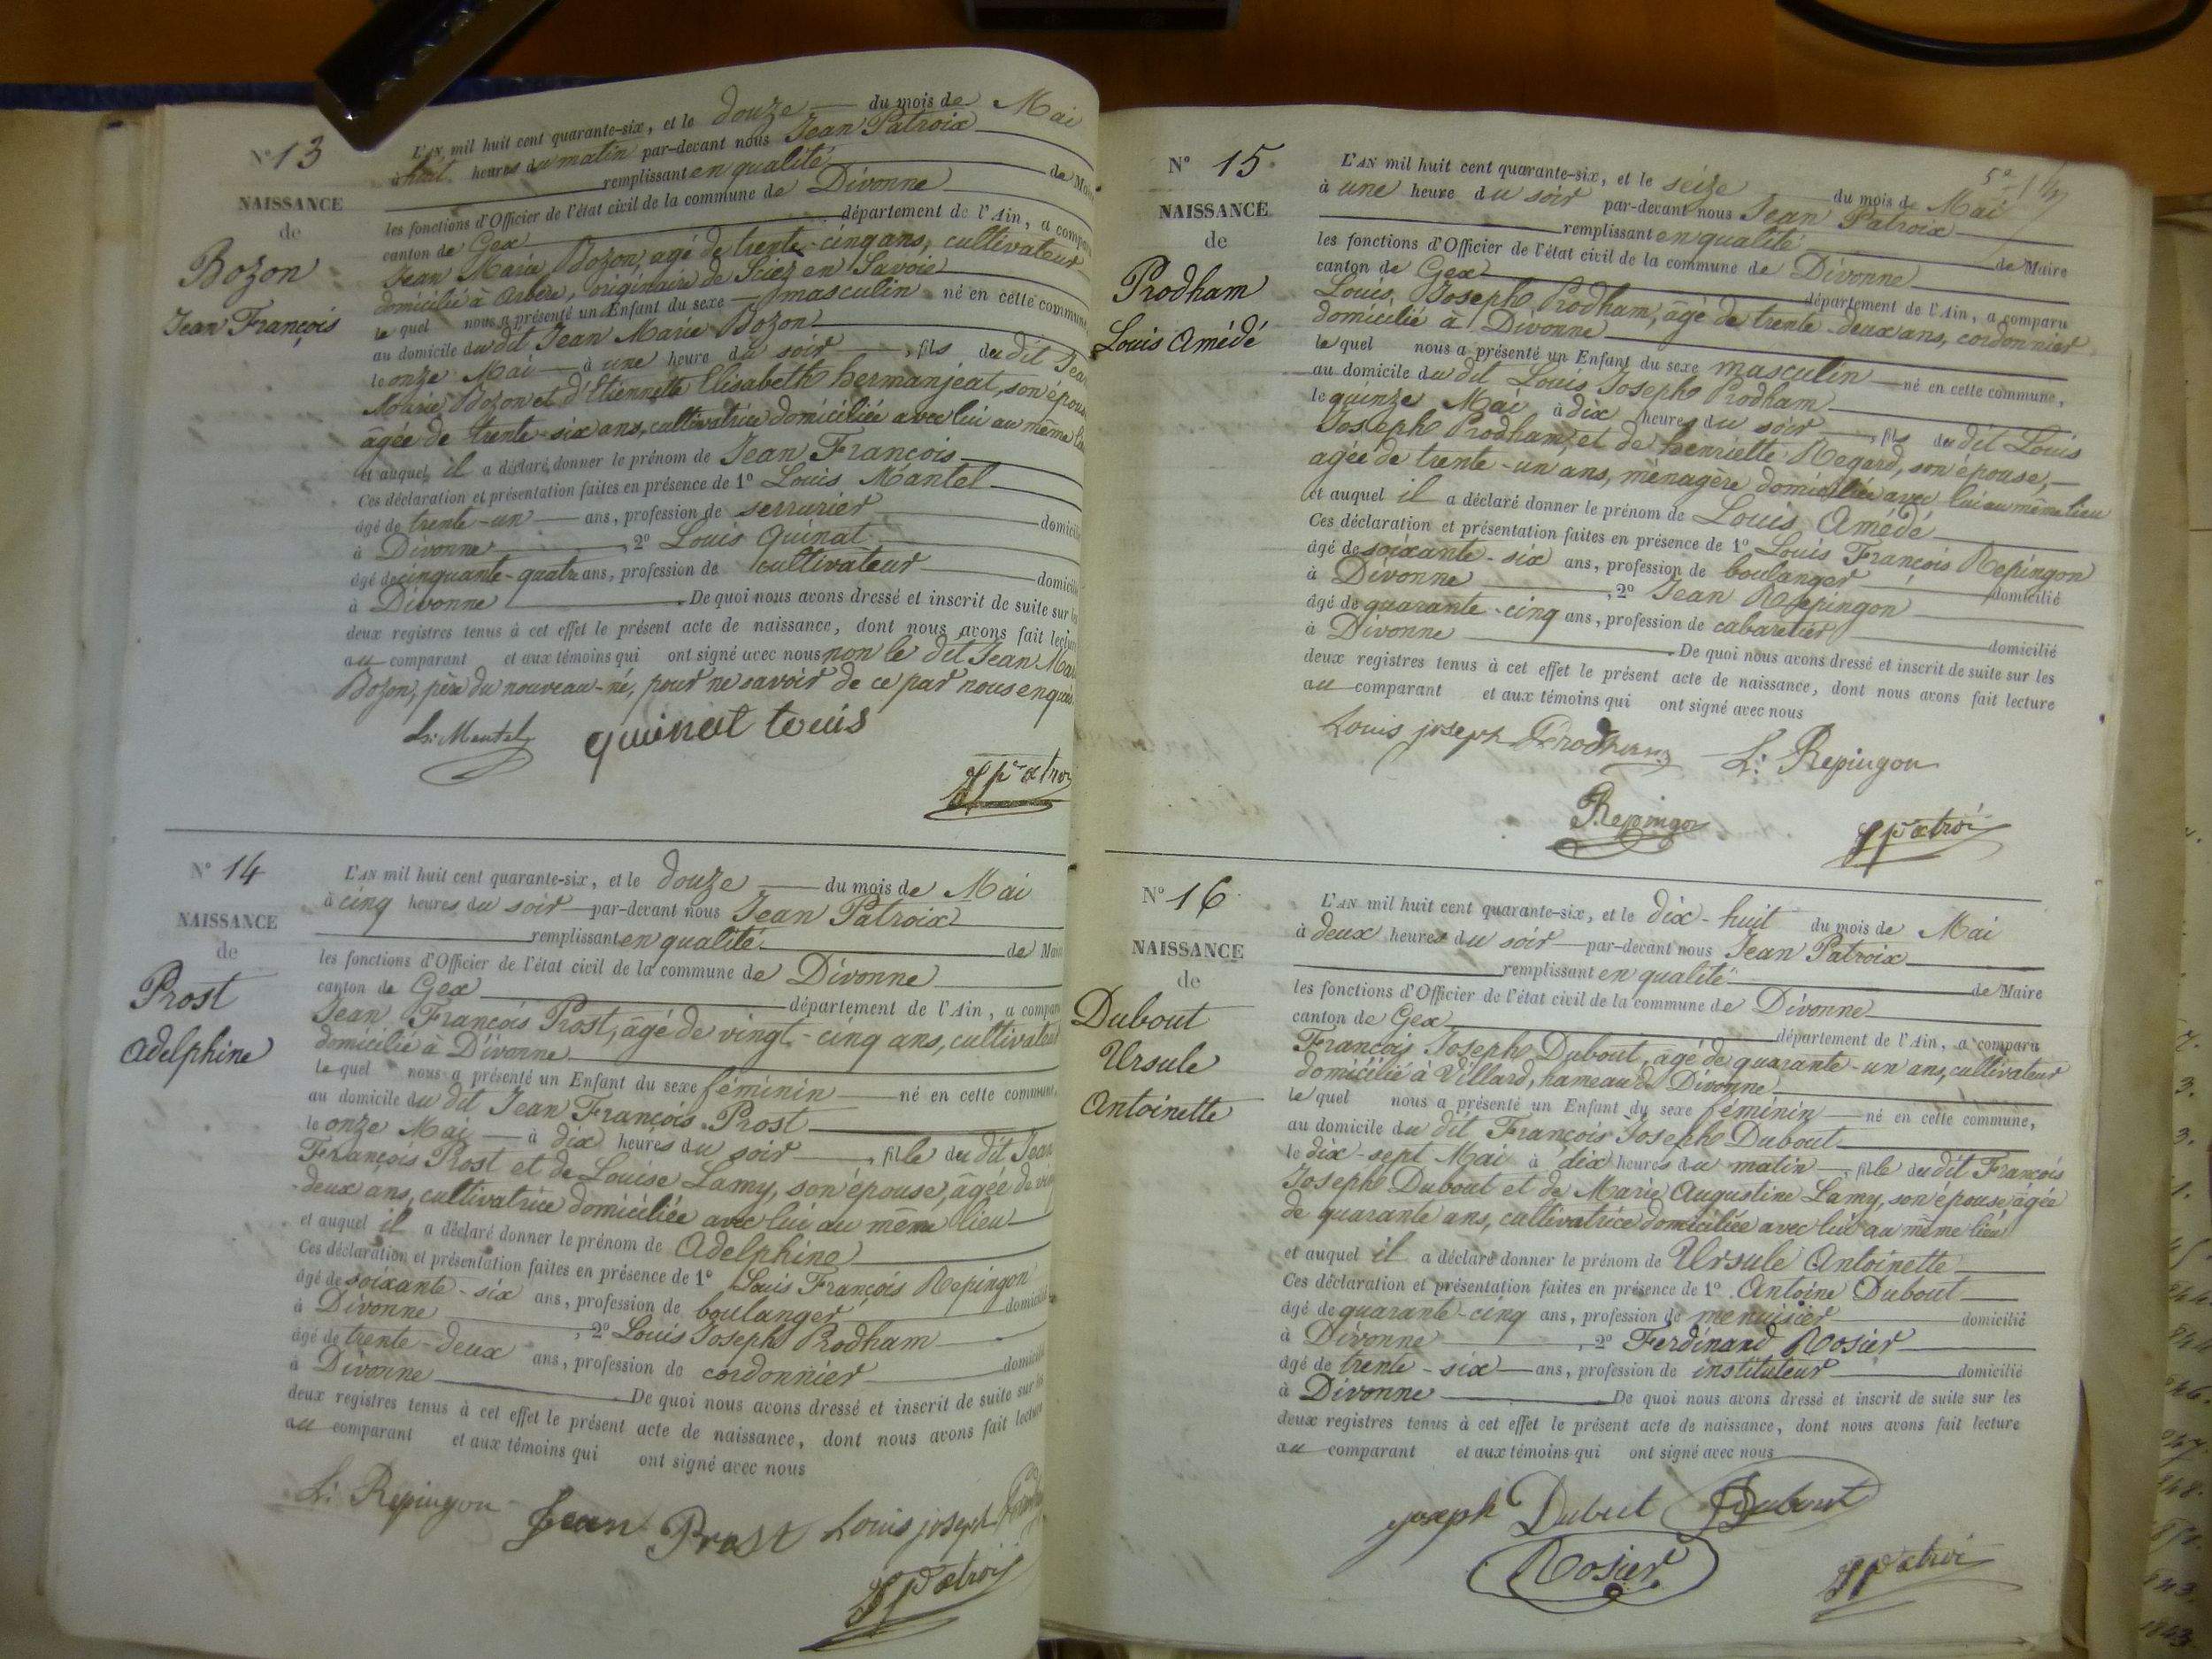 N° 13
NAISSANCE
de
Bozon
Jean François
L'AN mil huit cent quarante-six, et le douze du mois de Mai
à huit heures du matin par-devant nous Jean Patroix
remplissant en qualité de Maire
les fonctions d'Officier de l'état civil de la commune de Divonne
canton de Gex département de l'Ain, a comparu
Jean Marie Bozon, agé de trente-cinq ans, cultivateur
domicilié à Arbère, originaire de Sciez en Savoie
le quel nous a présenté un Enfant du sexe masculin né en cette commune,
au domicile du dit Jean Marie Bozon
le onze Mai à une heure du soir, fils du dit Jean
Marie Bozon et d'Etiennette Elisabeth hermanjeat, son épouse
âgée de trente-six ans, cultivatrice domiciliée avec lui au même lieu
et auquel il a déclaré donner le prénom de Jean François
Ces déclaration et présentation faites en présence de 1° Louis Mantel
âgé de trente-un ans, profession de serrurier domicilié
à Divonne, 2° Louis Quinat
âgé de cinquante-quatre ans, profession de cultivateur domicilié
à Divonne. De quoi nous avons dressé et inscrit de suite sur les
deux registres tenus à cet effet le présent acte de naissance, dont nous avons fait lecture
au comparant et aux témoins qui ont signé avec nous non le dit Jean Marie
Bozon, père du nouveau-né, pour ne savoir de ce par nous enquis
Ls: Mantel quinat louis
J patroix
N° 14
NAISSANCE
de
Prost
Adelphine
L'AN mil huit cent quarante-six, et le douze du mois de Mai
à cinq heures du soir par-devant nous Jean Patroix
remplissant en qualité de Maire
les fonctions d'Officier de l'état civil de la commune de Divonne
canton de Gex département de l'Ain, a comparu
Jean François Prost, âgé de vingt-cinq ans, cultivateur
domicilié à Divonne
le quel nous a présenté un Enfant du sexe féminin né en cette commune,
au domicile du dit Jean François Prost
le onze Mai à dix heures du soir, fille du dit Jean
François Prost et de Louise Lamy, son épouse, âgée de vingt
-deux ans, cultivatrice domiciliée avec lui au même lieu
et auquel il a déclaré donner le prénom de Adelphine
Ces déclaration et présentation faites en présence de 1° Louis François Repingon
âgé de soixante-six ans, profession de boulanger domicilié
à Divonne, 2° Louis Joseph Prodham
âgé de trente-deux ans, profession de cordonnier domicilié
à Divonne. De quoi nous avons dressé et inscrit de suite sur les
deux registres tenus à cet effet le présent acte de naissance, dont nous avons fait lecture
au comparant et aux témoins qui ont signé avec nous
L: Repingon Jean Prost Louis joseph
J patroix
5e
N° 15
NAISSANCE
de
Prodham
Louis Amédé
L'AN mil huit cent quarante-six, et le seize du mois de Mai
à une heure du soir par-devant nous Jean Patroix
remplissant en qualité de Maire
les fonctions d'Officier de l'état civil de la commune de Divonne
canton de Gex département de l'Ain, a comparu
Louis Joseph Prodham, âgé de trente-deux ans, cordonnier,
domicilié à Divonne
le quel nous a présenté un Enfant du sexe masculin né en cette commune,
au domicile du dit Louis Joseph Prodham
le quinze Mai à dix heures du soir, fils du dit Louis
Joseph Prodham et de henriette Regard, son épouse,
agée de trente-un ans, ménagère domiciliée avec lui au même lieu
et auquel il a déclaré donner le prénom de Louis Amédé
Ces déclaration et présentation faites en présence de 1° Louis François Repingon
âgé de soixante-six ans, profession de boulanger domicilié
à Divonne, 2° Jean Repingon
âgé de quarante-cinq ans, profession de cabaretier domicilié
à Divonne. De quoi nous avons dressé et inscrit de suite sur les
deux registres tenus à cet effet le présent acte de naissance, dont nous avons fait lecture
au comparant et aux témoins qui ont signé avec nous
Louis joseph Prodham L: Repingon
Repingon J patroix
N° 16
NAISSANCE
de
Dubout
Ursule
Antoinette
L'AN mil huit cent quarante-six, et le dix-huit du mois de Mai
à deux heures du soir par-devant nous Jean Patroix
remplissant en qualité de Maire
les fonctions d'Officier de l'état civil de la commune de Divonne
canton de Gex département de l'Ain, a comparu
François Joseph Dubout, agé de quarante-un ans, cultivateur
domicilié à Villard, hameau de Divonne
le quel nous a présenté un Enfant du sexe féminin né en cette commune,
au domicile du dit François Joseph Dubout
le dix-sept Mai à dix heures du matin, fille du dit François
Joseph Dubout et de Marie Augustine Lamy, son épouse, âgée
de quarante ans, cultivatrice domiciliée avec lui au même lieu
et auquel il a déclaré donner le prénom de Ursule Antoinette
Ces déclaration et présentation faites en présence de 1° Antoine Dubout
âgé de quarante-cinq ans, profession de menuisier domicilié
à Divonne, 2° Ferdinand Rosier
âgé de trente-six ans, profession de instituteur domicilié
à Divonne De quoi nous avons dressé et inscrit de suite sur les
deux registres tenus à cet effet le présent acte de naissance, dont nous avons fait lecture
au comparant et aux témoins qui ont signé avec nous
joseph Dubout Dubout
Rosier J patroix